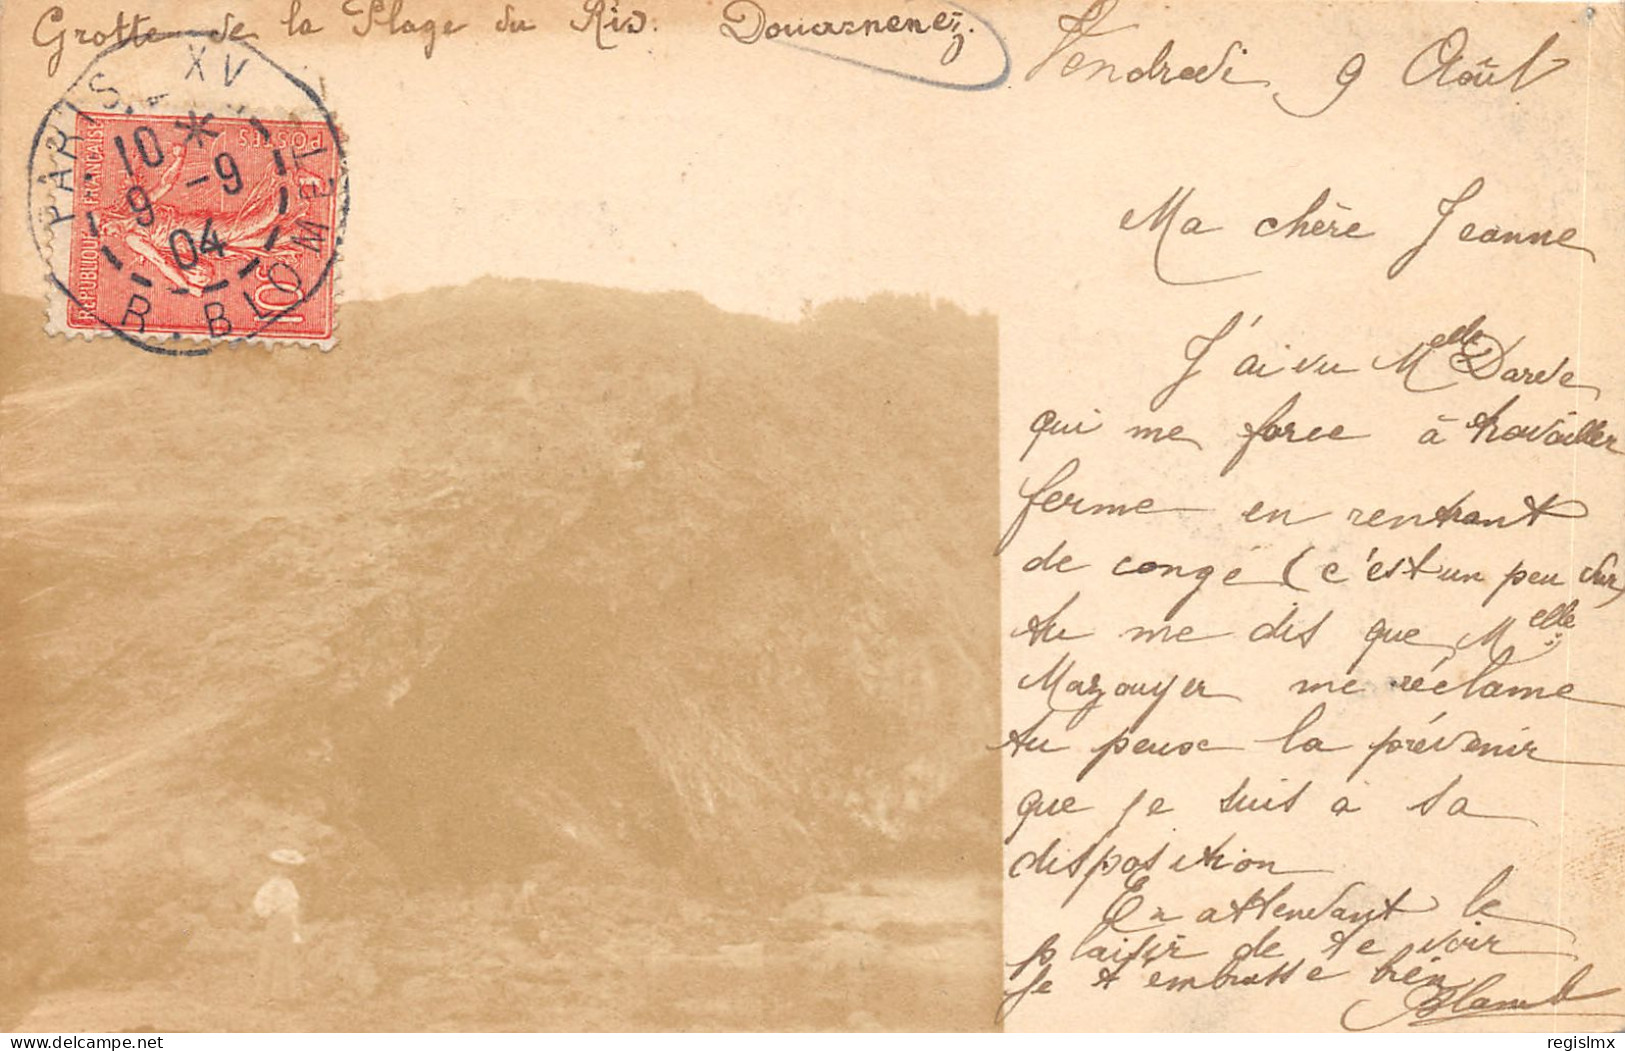 Grotte de la Plage du Ris. Douarnenez.
PARIS. XV
R. BLOMET
10 *
9 -9
04
REPUBLIQUE FRANÇAISE
POSTES
10c
Vendredi 9 Août
Ma chère Jeanne
J'ai vu Melle Darde
qui me force à travailler
ferme en rentrant
de congé (c'est un peu dur)
tu me dis que Melle
Mazouyer me réclame
tu peux la prévenir
que je suis à sa
disposition
En attendant le
plaisir de te voir
Je t'embrasse bien
regislmx
delcampe.net